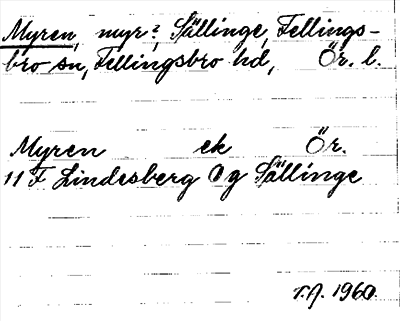 Myren, myr?, Sällinge, Fellings-
bro sn, Fellingsbro hd, Ör. l.
Myren ek Ör.
11 F Lindesberg Og Sällinge
T.A. 1960